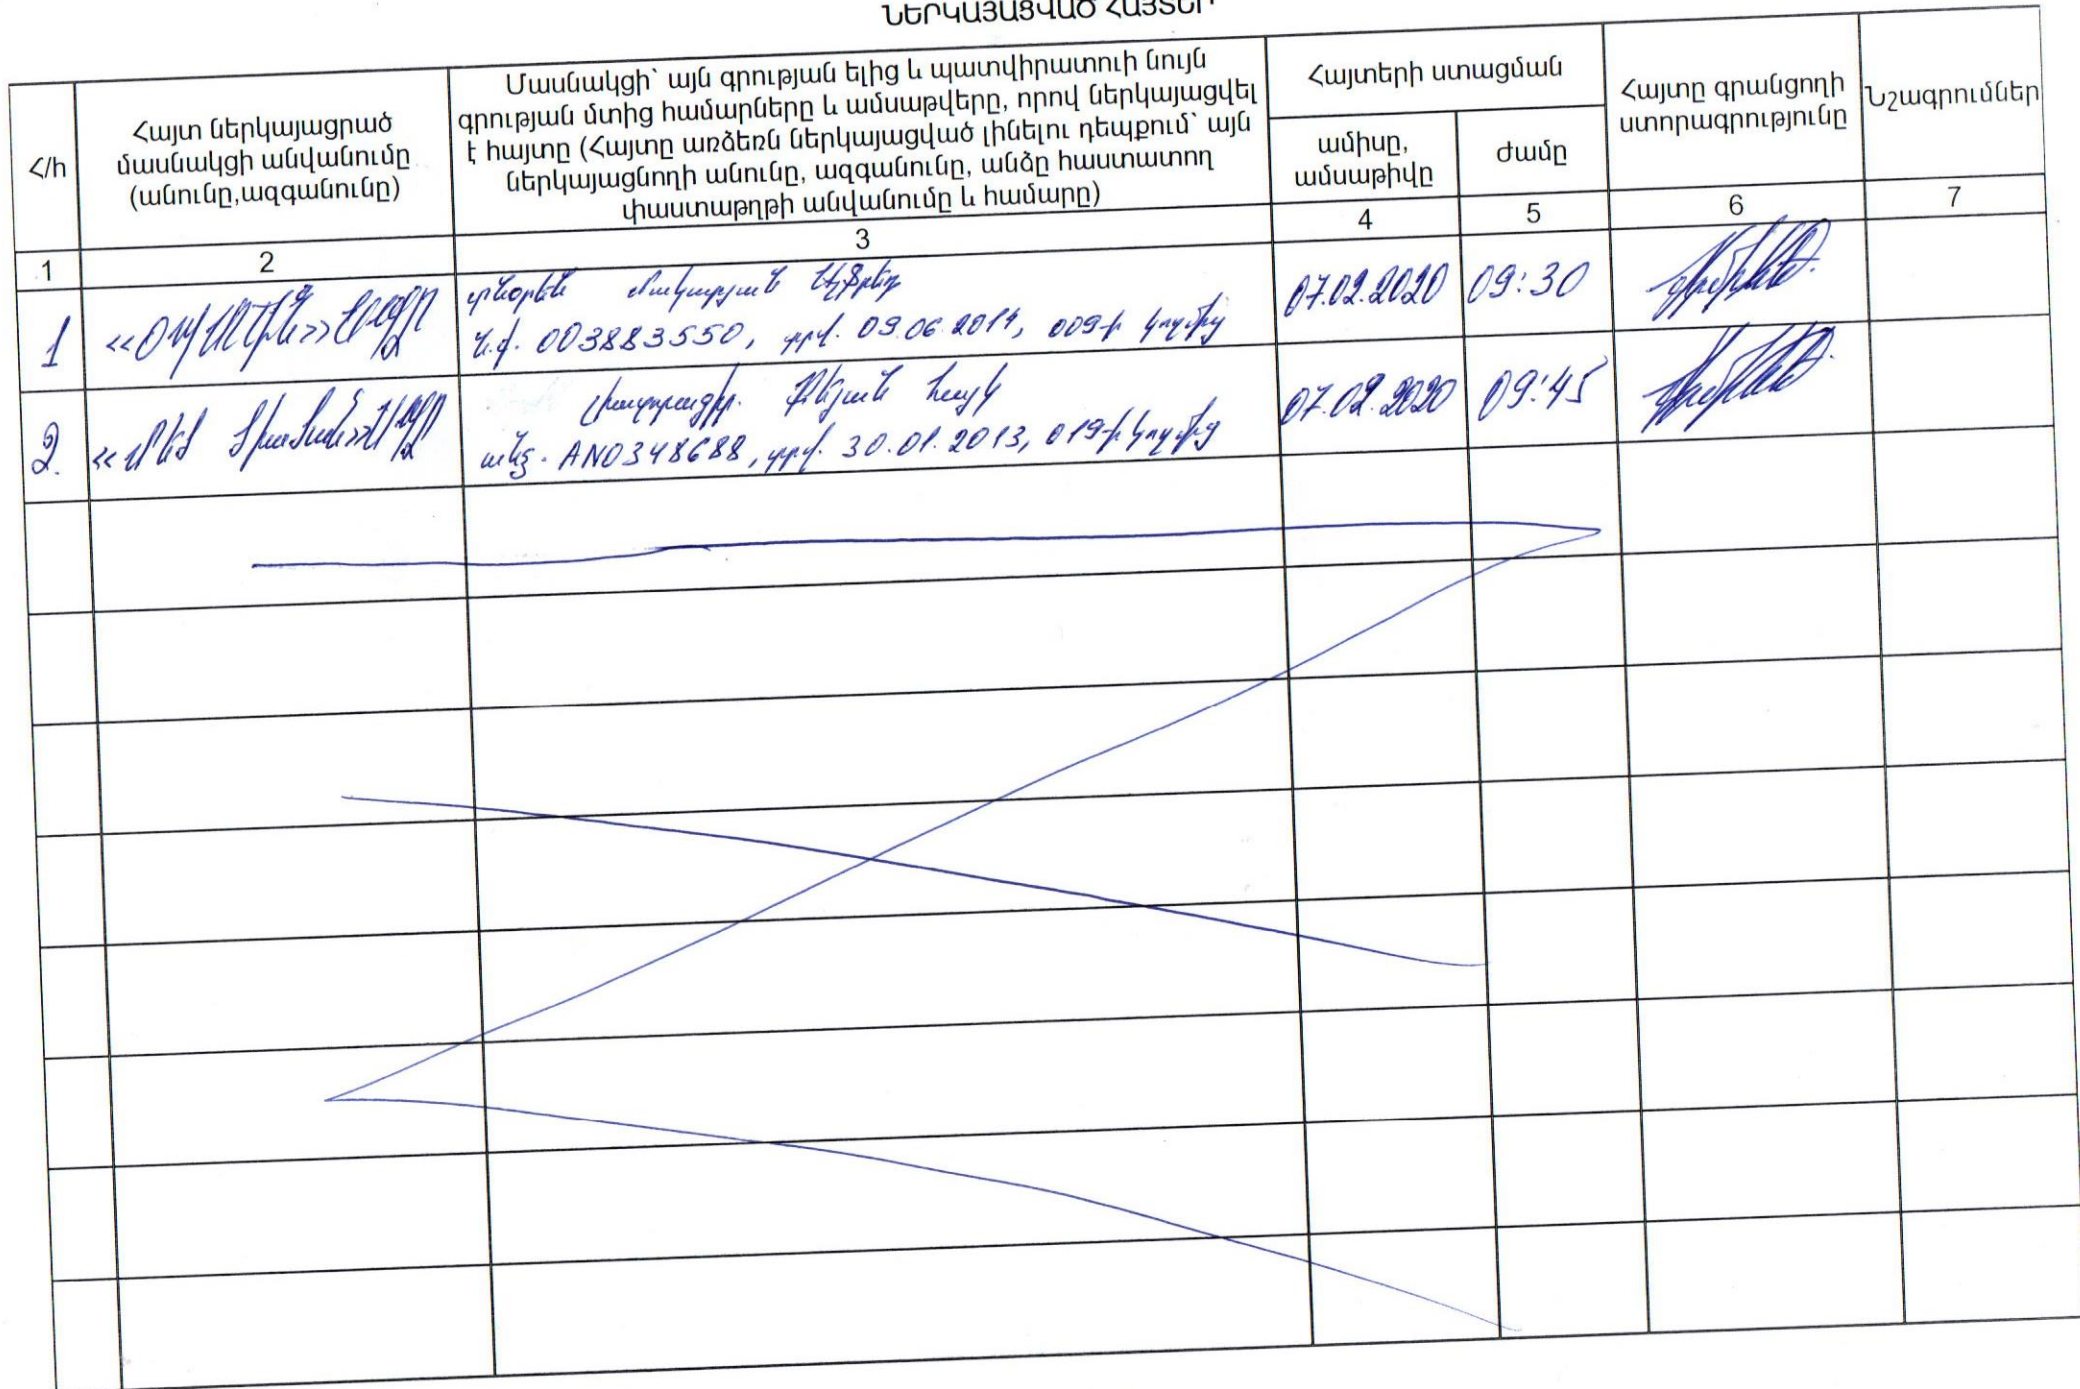 ՆԵՐԿԱՅԱՑՎԱԾ ՀԱՅՏԵՐ
Հ/հ
Հայտ ներկայացրած
մասնակցի անվանումը
(անունը,ազգանունը)
Մասնակցի՝ այն գրության ելից և պատվիրատուի նույն
գրության մտից համարները և ամսաթվերը, որով ներկայացվել
է հայտը (Հայտը առձեռն ներկայացված լինելու դեպքում՝ այն
ներկայացնողի անունը, ազգանունը, անձը հաստատող
փաստաթղթի անվանումը և համարը)
Հայտերի ստացման
ամիսը,
ամսաթիվը
ժամը
Հայտը գրանցողի
ստորագրությունը
Նշագրումներ
1 2 3 4 5 6 7
տնօրեն
1 07.02.2020 09:30
003883550, տրվ. 09.06.2014, 009-ի կողմից
Հայկ
2. «Մեծ 07.02.2020 09:45
անձ. AN0348688, տրվ. 30.01.2013, 019-ի կողմից